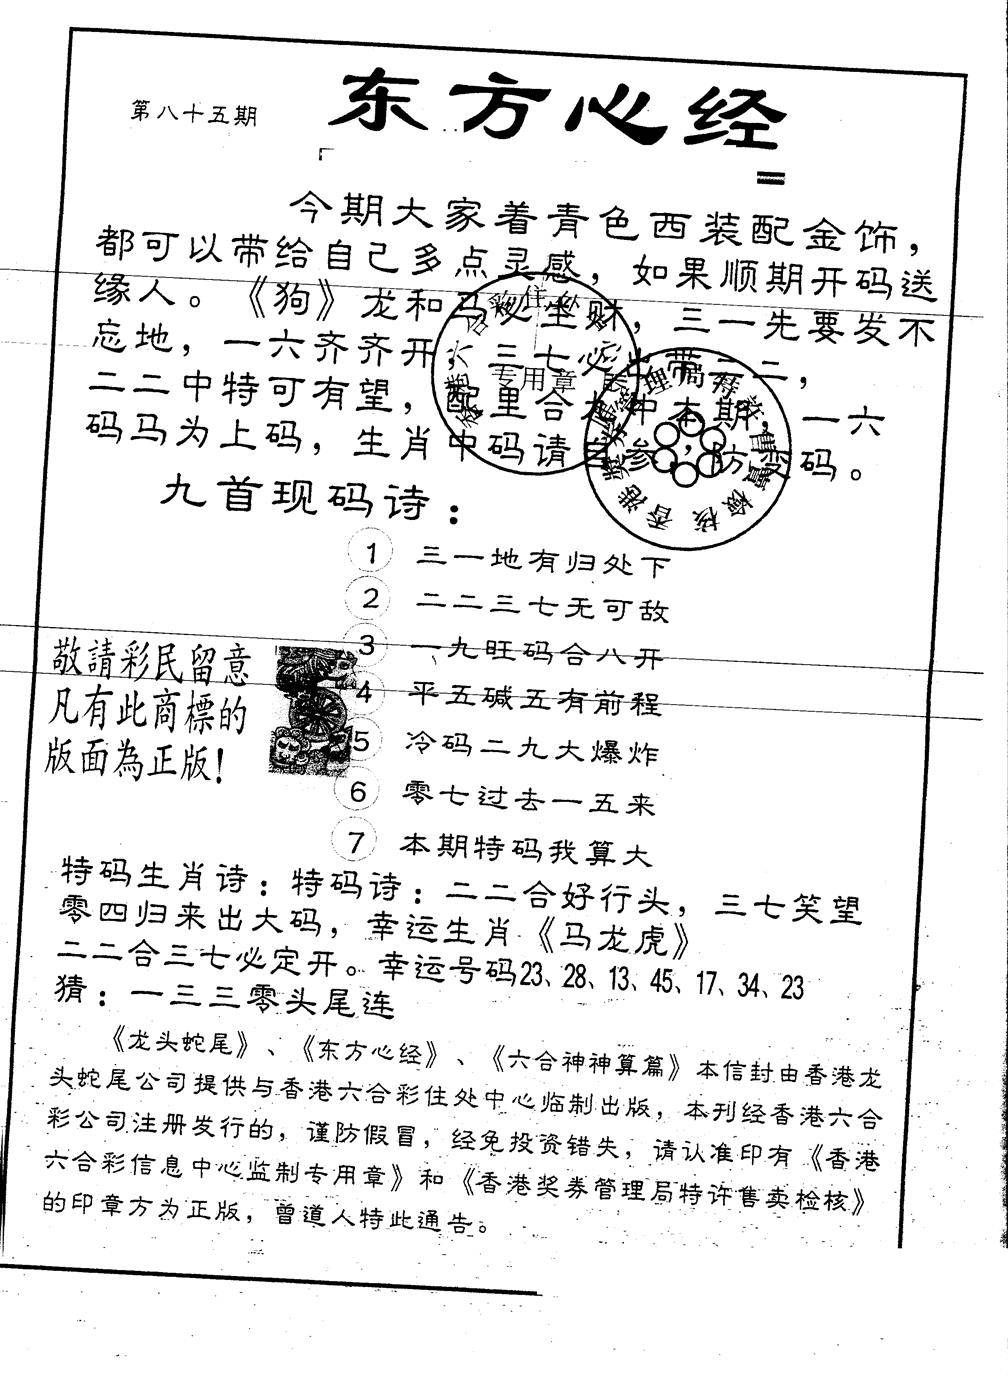 第八十五期
东方心经
今期大家着青色西装配金饰，
都可以带给自己多点灵感，如果顺期开码送
缘人。《狗》龙和马必生财，三一先要发不
忘地，一六齐齐开，三七必出带二二，
二二中特可有望，配里合九冲本期，一六
码马为上码，生肖中码请 参，防变码。
专用章
香港奖券管理局特許售賣檢核
九首现码诗：
1 三一地有归处下
2 二二三七无可敌
3 一九旺码合八开
4 平五碱五有前程
5 冷码二九大爆炸
6 零七过去一五来
7 本期特码我算大
敬請彩民留意
凡有此商標的
版面為正版！
特码生肖诗：特码诗：二二合好行头，三七笑望
零四归来出大码，幸运生肖《马龙虎》
二二合三七必定开。幸运号码23、28、13、45、17、34、23
猜：一三三零头尾连
《龙头蛇尾》、《东方心经》、《六合神神算篇》本信封由香港龙
头蛇尾公司提供与香港六合彩住处中心临制出版，本刊经香港六合
彩公司注册发行的，谨防假冒，经免投资错失，请认准印有《香港
六合彩信息中心监制专用章》和《香港奖券管理局特许售卖检核》
的印章方为正版，曾道人特此通告。